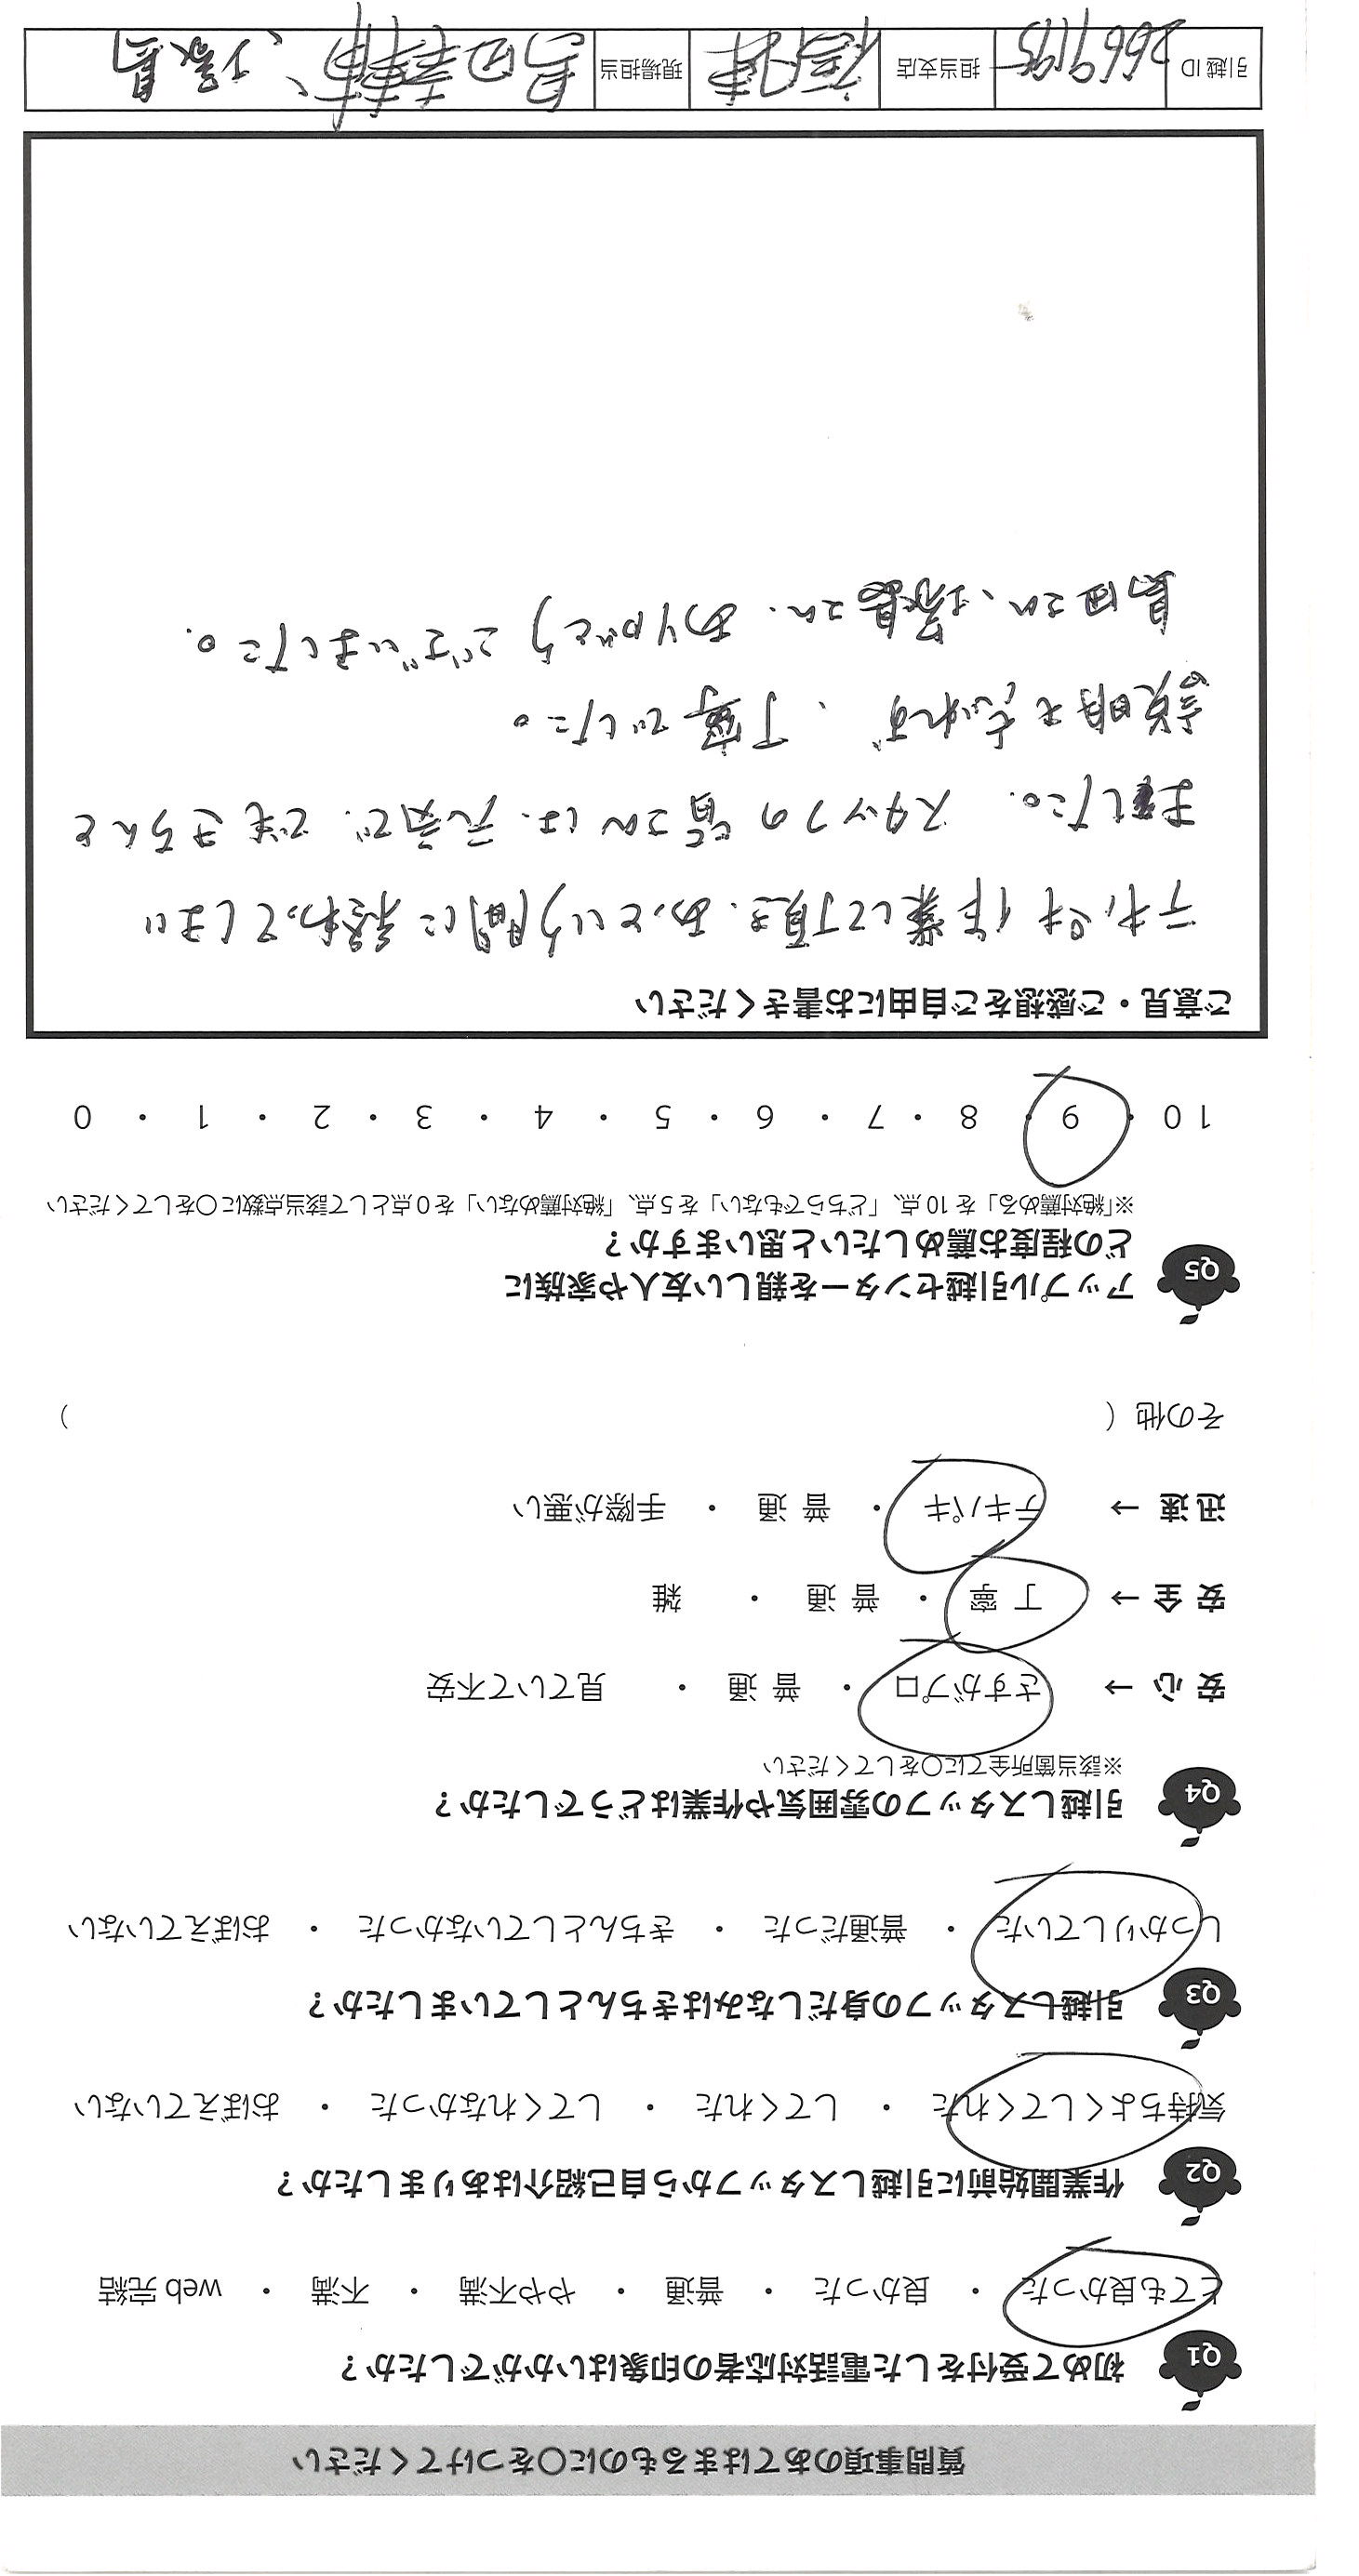 質問事項のあてはまるものに〇をつけてください
Q1 初めて受付をした電話対応者の印象はいかがでしたか？
とても良かった ・ 良かった ・ 普通 ・ やや不満 ・ 不満 ・ web 完結
Q2 作業開始前に引越しスタッフから自己紹介はありましたか？
気持ちよくしてくれた ・ してくれた ・ してくれなかった ・ おぼえていない
Q3 引越しスタッフの身だしなみはきちんとしていましたか？
しっかりしていた ・ 普通だった ・ きちんとしていなかった ・ おぼえていない
Q4 引越しスタッフの雰囲気や作業はどうでしたか？
※該当箇所全てに〇をしてください
安心 → さすがプロ ・ 普通 ・ 見ていて不安
安全 → 丁寧 ・ 普通 ・ 雑
迅速 → テキパキ ・ 普通 ・ 手際が悪い
その他（ ）
Q5 アップル引越センターを親しい友人や家族に
どの程度お薦めしたいと思いますか？
※「絶対薦める」を 10 点、「どちらでもない」を 5 点、「絶対薦めない」を 0 点として該当点数に〇をしてください
10 ・ 9 ・ 8 ・ 7 ・ 6 ・ 5 ・ 4 ・ 3 ・ 2 ・ 1 ・ 0
ご意見・ご感想をご自由にお書きください
テキパキ作業して頂き、あっという間に終わってしまい
ました。スタッフの皆さんは、元気で、でもきちんと
説明も忘れず、丁寧でした。
島田さん、さん、ありがとうございました。
引越 ID 2669195 担当支店 現場担当 島田